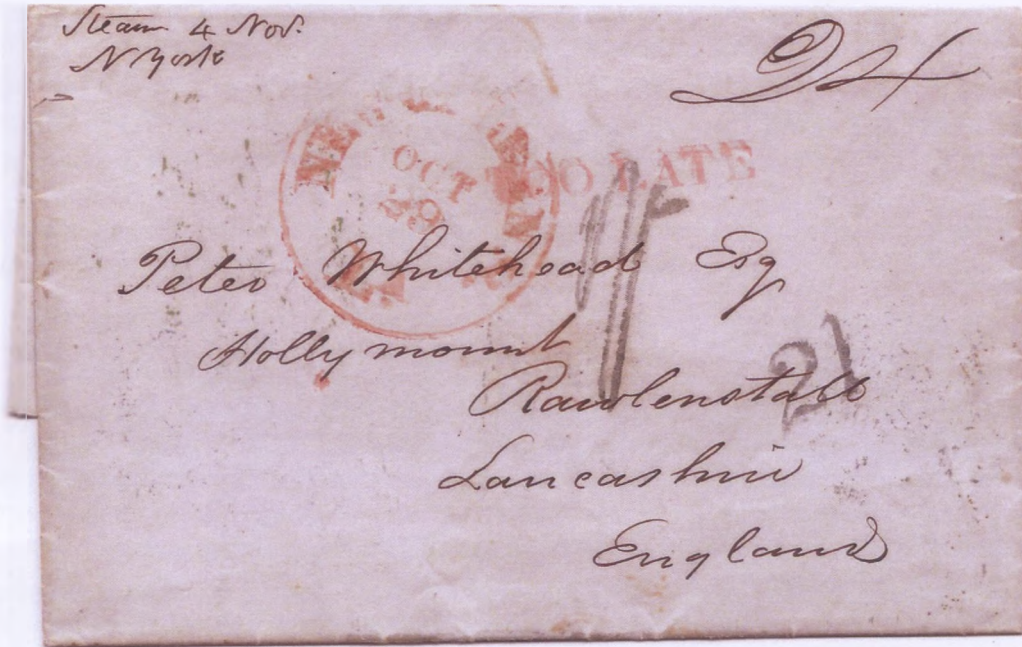 Steam 4 Nov.
N York
OCT
29
TOO LATE
Peter Whitehead Esq
Hollymount
21
Rawlenstall
Lancashire
England